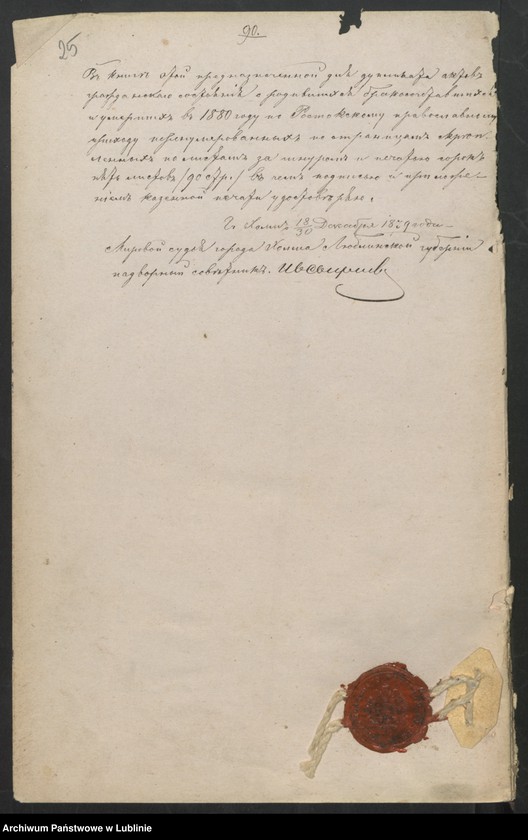 90.
25
Въ книгѣ сей предназначенной для дупликата актовъ
гражданского состоянія о родившихся бракосочетавшихся
и умершихъ въ 1880 году по Ростокскому православному
приходу пронумерованныхъ по страницамъ
по листамъ за шнуромъ и печатью сорокъ
пять листовъ /90 стр./ въ чемъ подписью и приложе-
ніемъ казенной печати удостовѣряю.
Г. Холмъ 18/30 Декабря 1879 года
Мировой судья города Холма Люблинской губерніи
надворный совѣтникъ.
Archiwum Państwowe w Lublinie